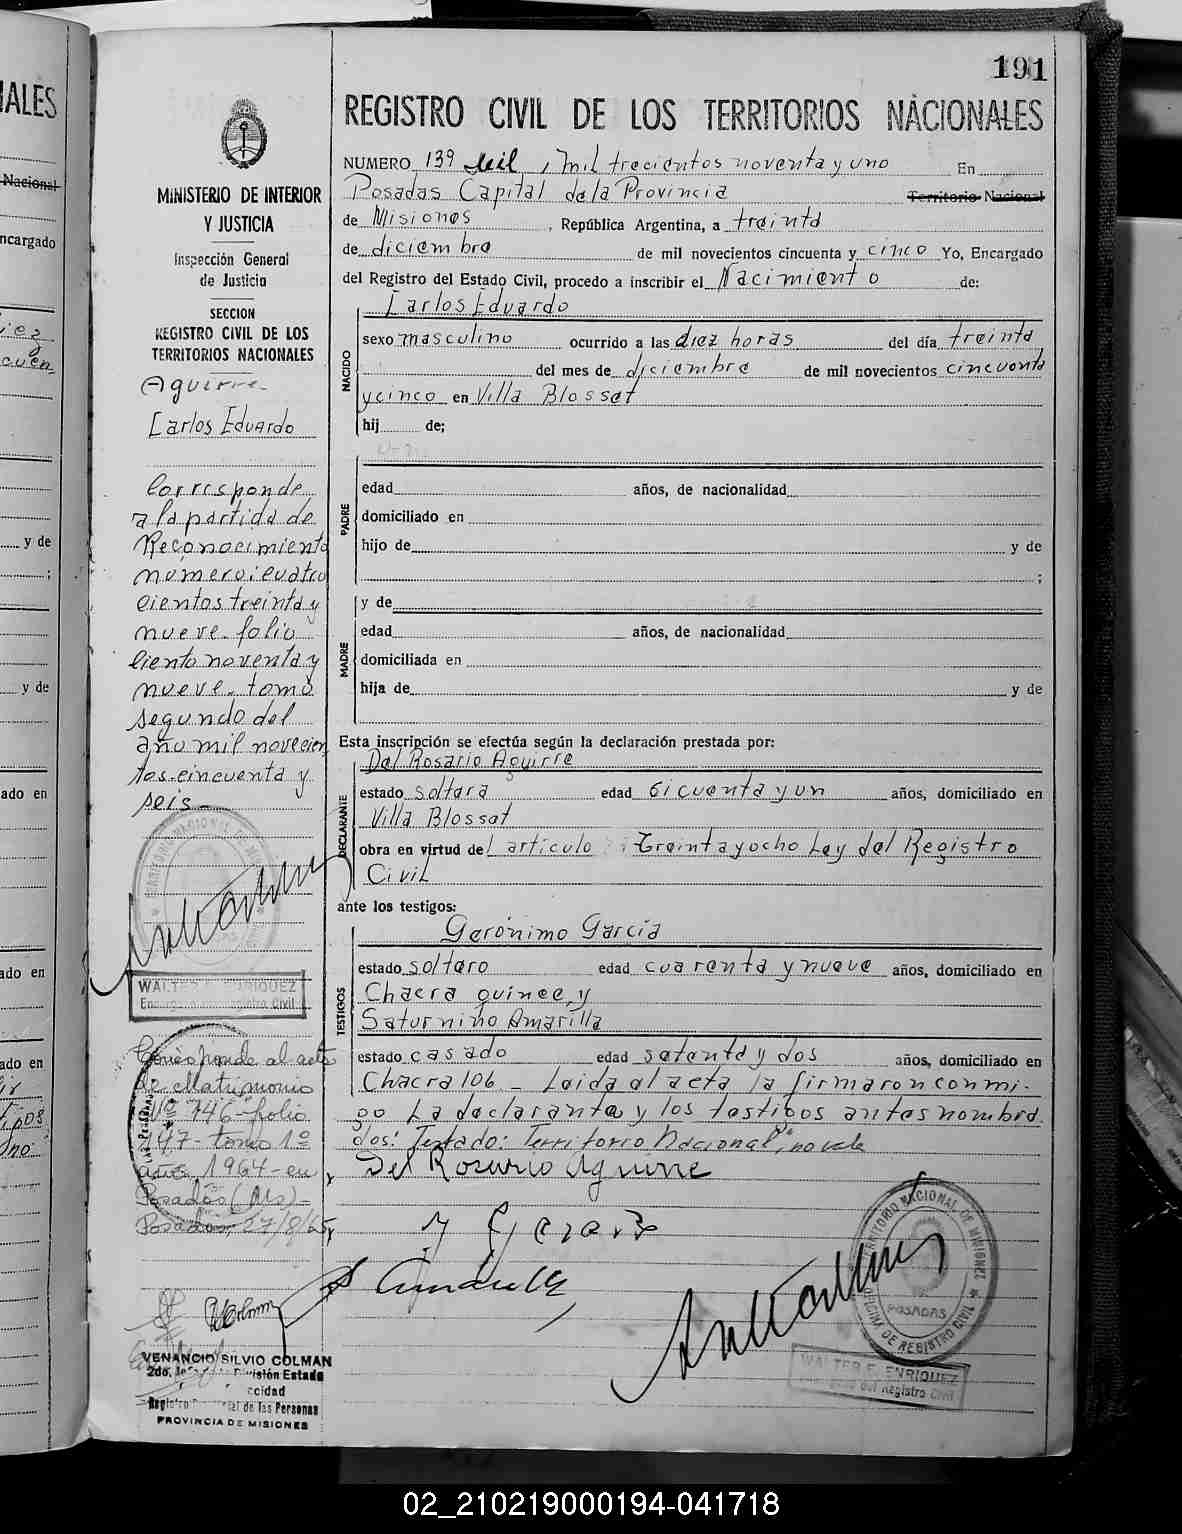 191
REGISTRO CIVIL DE LOS TERRITORIOS NACIONALES
NUMERO 139 mil, mil trecientos noventa y uno En
Posadas Capital de la Provincia Territorio Nacional
de Misiones, República Argentina, a treinta
de diciembre de mil novecientos cincuenta y cinco Yo, Encargado
del Registro del Estado Civil, procedo a inscribir el Nacimiento de:
Carlos Eduardo
NACIDO
sexo masculino ocurrido a las diez horas del día treinta
del mes de diciembre de mil novecientos cincuenta
y cinco en Villa Blosset
hij de;
PADRE
edad años, de nacionalidad
domiciliado en
hijo de y de
;
MADRE
y de
edad años, de nacionalidad
domiciliada en
hija de y de
Esta inscripción se efectúa según la declaración prestada por:
Del Rosario Aguirre
DECLARANTE
estado soltera edad cicuenta y un años, domiciliado en
Villa Blosset
obra en virtud del artículo Treinta y ocho Ley del Registro
Civil
ante los testigos:
Gerónimo García
TESTIGOS
estado soltero edad cuarenta y nueve años, domiciliado en
Chacra quince, y
Saturnino Amarilla
estado casado edad setenta y dos años, domiciliado en
Chacra 106 - Leida al acta la firmaron conmi-
go la declarante y los testigos antes nombra
dos: Testado: Territorio Nacional", no vale
Del Rosario Aguirre
TERRITORIO NACIONAL DE MISIONES
OFICINA DE REGISTRO CIVIL
POSADAS
WALTER F. ENRIQUEZ
Encargado del Registro Civil
MINISTERIO DE INTERIOR
Y JUSTICIA
Inspección General
de Justicia
SECCION
REGISTRO CIVIL DE LOS
TERRITORIOS NACIONALES
Aguirre
Carlos Eduardo
Corresponde
a la partida de
Reconocimiento
número: cuatro
cientos treinta y
nueve. folio
ciento noventa y
nueve. tomo
segundo del
año mil novecien
tos cincuenta y
seis -
WALTER F. ENRIQUEZ
Encargado del Registro Civil
Corresponde al acta
de Matrimonio
Nº 746 - folio
147 - tomo 1º
año 1964 - en
Posadas (Ms) -
Posadas, 27/8/65
VENANCIO SILVIO COLMAN
2do. Jefe División Estado
Registro Provincial de las Personas
PROVINCIA DE MISIONES
IALES
Nacional
ncargado
y de
;
y de
ado en
ado en
ado en
02_210219000194-041718